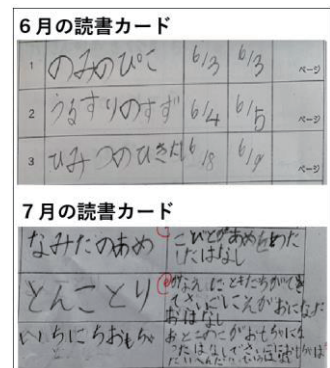 6月の読書カード
1 のみのぴこ 6/3 6/3 ページ
2 うるすりのすず 6/4 6/5 ページ
3 ひみつのひきだし 6/8 6/9 ページ
7月の読書カード
なみたのあめ
こびとがあめをめた
したはなし
とんことり
かなえにともだちができ
てさいごにえがおになた
おはなし
いちにちおもちゃ
おとこのこがおもちゃにな
ったはなしでさいごにおもちゃは